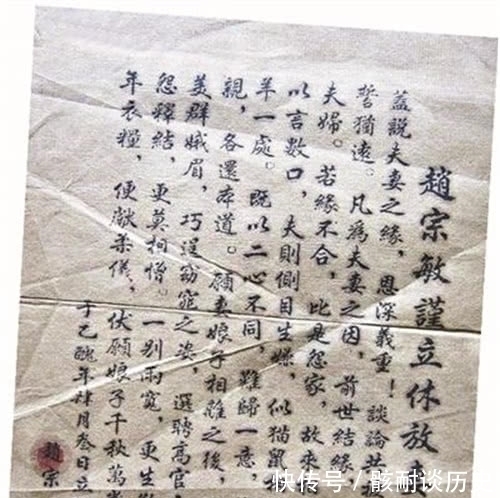 趙宗敏謹立休放
蓋說夫妻之緣，恩深義重！談論共
誓猶遠。凡為夫妻之因，前世結緣
夫婦。若緣不合，比是怨家，故來
以言數口，夫則側目生嫌，似猫鼠
羊一處。既以二心不同，難歸一意，
親，各還本道。願妻娘子相離之後，
美群娥眉，巧逞窈窕之姿，選聘高官
怨釋結，更莫相憎。一別兩寬，更生
年衣糧，便獻柔儀，伏願娘子千秋萬
于乙醜年肆月叁日立
趙宗
快传号/骸耐谈历